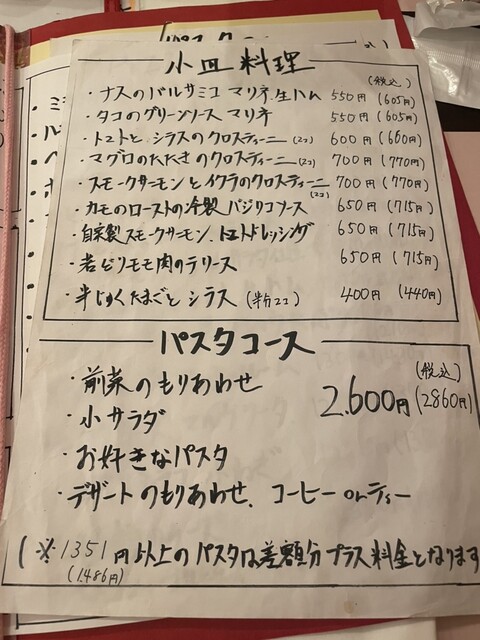 パスタコー
小皿料理
(税込)
・ナスのバルサミコマリネ、生ハム 550円 (605円)
・タコのグリーンソース マリネ 550円 (605円)
・トマトと シラスのクロスティーニ(2コ) 600円 (660円)
・マグロのたたきのクロスティーニ(2コ) 700円 (770円)
・スモークサーモンとイクラのクロスティーニ(2コ) 700円 (770円)
・カモのローストの冷製 バジリコソース 650円 (715円)
・自家製スモークサーモン、トマトドレッシング 650円 (715円)
・若どりモモ肉のテリース 650円 (715円)
・半じゅくたまごと シラス (半分2コ) 400円 (440円)
パスタコース
(税込)
・前菜のもりあわせ 2.600円 (2860円)
・小サラダ
・お好きなパスタ
・デザートのもりあわせ、コーヒー orティー
(※1351円以上のパスタは差額分プラス料金となります
(1.486円)